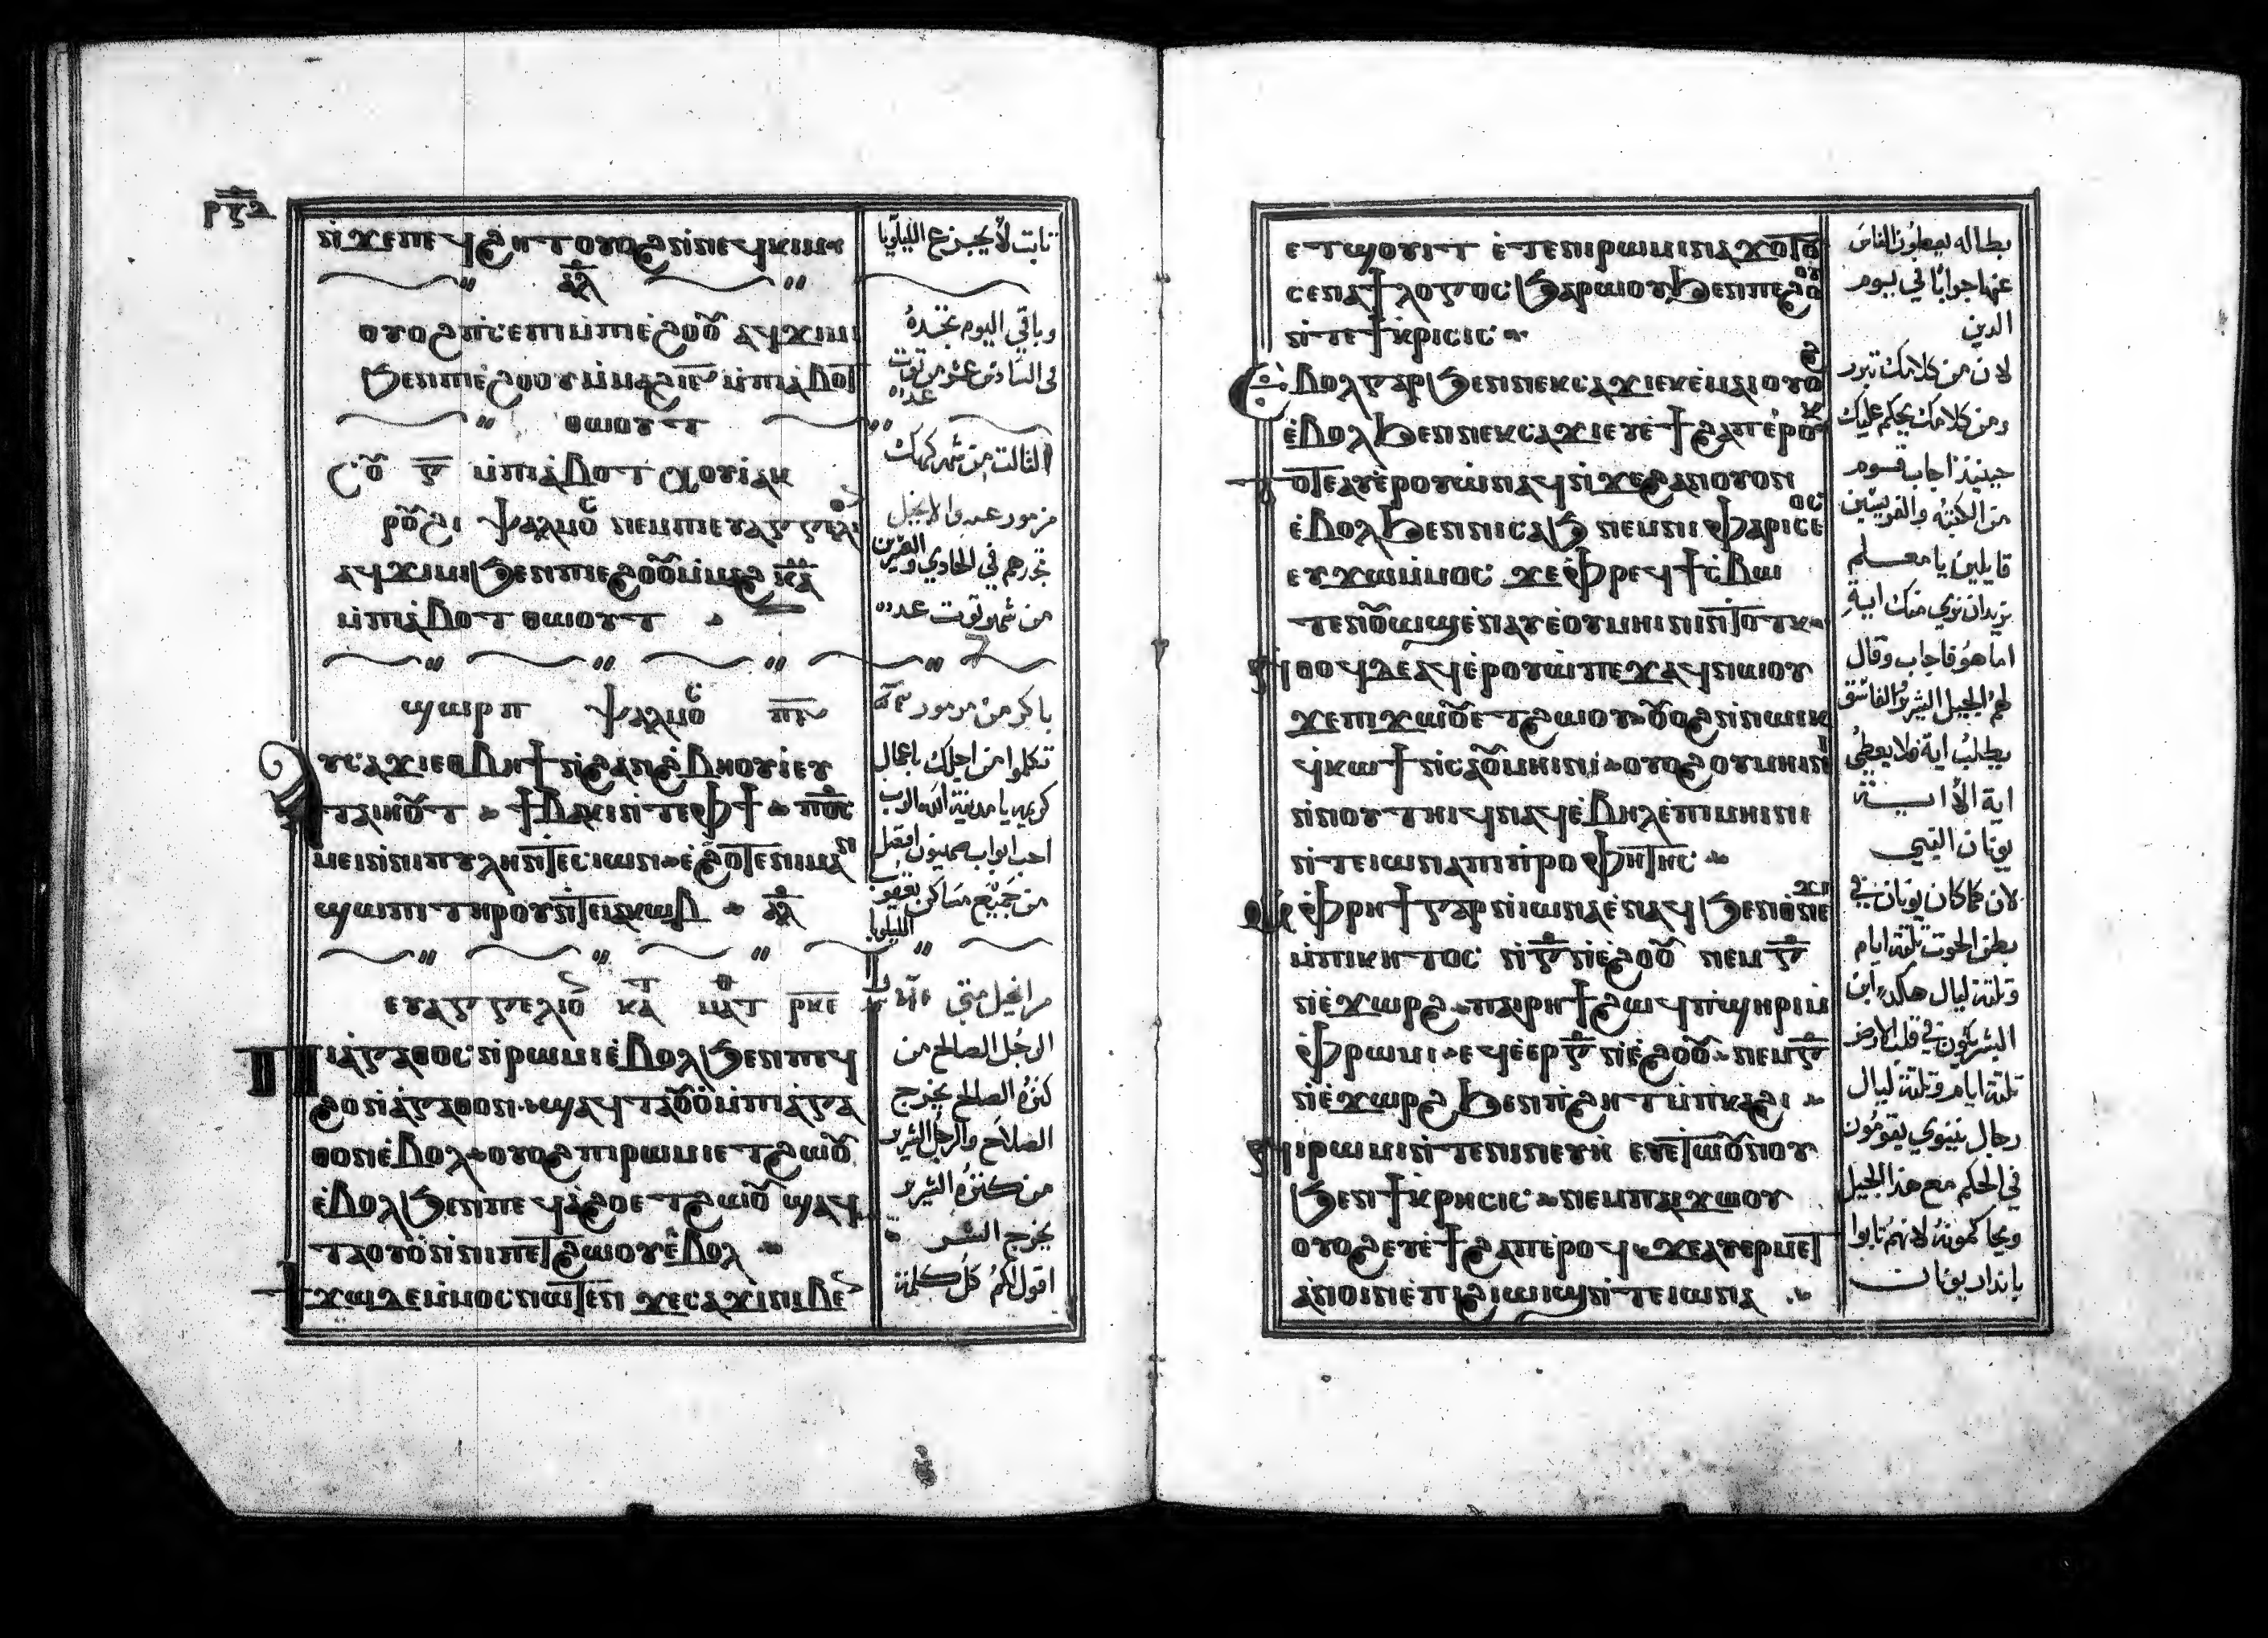 ⲛ̀ϫⲉⲡⲉϥϩⲏⲧ ⲟⲩⲟϩ ⲛ̀ⲛⲉϥⲕⲓⲙ
ⲁ̅ⲗ̅
ⲟⲩⲟϩ ⲡ̀ⲥⲉⲡⲓ ⲙ̀ⲡⲓⲉ̀ϩⲟⲟ̅ ⲁϥϫⲓⲙⲓ
ϧⲉⲛⲡⲓⲉ̀ϩⲟⲟⲩ ⲙ̀ⲙⲁϩ ⲓ̅ⲋ̅ ⲙ̀ⲡⲓⲁ̀ⲃⲟⲧ
ⲑⲱⲟⲩⲧ
ⲅ̅ ⲙ̀ⲡⲓⲁ̀ⲃⲟⲧ ⲭⲟⲓⲁⲕ
ⲣⲟ̅ϩⲓ ⲯⲁⲗⲙⲟ̅ ⲛⲉⲙⲡⲓⲉⲩⲁⲅⲅⲉⲗⲓ
ⲁϥϫⲓⲙⲓ ϧⲉⲛⲡⲓⲉϩⲟⲟ̅ ⲙ̀ⲙⲁϩ ⲕ̅ⲁ̅
ⲙ̀ⲡⲓⲁ̀ⲃⲟⲧ ⲑⲱⲟⲩⲧ
ϣⲱⲣⲡ ⲯⲁⲗⲙⲟ̅ ⲡ̅ⲋ̅
ⲁⲩⲥⲁϫⲓ ⲉⲑⲃⲏϯ ⲛ̀ϩⲁⲛϩ̀ⲃⲏⲟⲩⲓ ⲉⲩ
ⲧⲁⲓⲏⲟ̅ⲧ ϯⲃⲁⲕⲓ ⲛ̀ⲧⲉⲫϯ ⲡⲟ̅ⲥ̅
ⲙⲉⲓ ⲛ̀ⲛⲓⲡⲩⲗⲏ ⲛ̀ⲧⲉⲥⲓⲱⲛ ⲉ̀ϩⲟⲧⲉ ⲛⲓⲙⲁⲛ
ϣⲱⲡⲓ ⲧⲏⲣⲟⲩ ⲛ̀ⲧⲉⲓⲁⲕⲱⲃ ⲁ̅ⲗ̅
ⲉⲩⲁⲅⲅⲉⲗⲓⲟ̅ ⲕⲁⲧ ⲙⲁⲧⲑ ⲣ̅ⲕ̅ⲉ̅
ⲡⲓⲁ̀ⲅⲁⲑⲟⲥ ⲛ̀ⲣⲱⲙⲓ ⲉ̀ⲃⲟⲗ ϧⲉⲛⲡⲉϥ
ϩⲟ ⲛ̀ⲁ̀ⲅⲁⲑⲟⲛ ϣⲁϥⲧⲁⲟ̅ⲟ̀ ⲙ̀ⲡⲓⲁ̀ⲅⲁ
ⲑⲟⲛ ⲉ̀ⲃⲟⲗ ⲟⲩⲟϩ ⲡⲓⲣⲱⲙⲓ ⲉⲧϩⲱⲟ̅
ⲉ̀ⲃⲟⲗ ϧⲉⲛⲡⲉϥⲁ̀ϩⲟ ⲉⲧϩⲱⲟ̅ ϣⲁϥ
ⲧⲁⲟⲩⲟ̀ ⲛ̀ⲛⲓⲡⲉⲧϩⲱⲟⲩ ⲉ̀ⲃⲟⲗ
ϯϫⲱ ⲇⲉ ⲙ̀ⲙⲟⲥ ⲛⲱⲧⲉⲛ ϫⲉ ⲥⲁϫⲓ ⲛⲓⲃⲉ
ثابت لا يجزع الليلويا
وباقي اليوم تجده
في السادس عشر من توت
الثالث من شهر كيهك
مزمور عشيه والانجيل
تجدهم في الحادي والعشرين
من شهر توت
باكر من مزمور
تكلموا من اجلك باعمال
كريمه يا مدينة الله الرب
احب ابواب صهيون افضل
من جميع مساكن يعقوب
الليلويا
من انجيل متي
الرجل الصالح من
كنزه الصالح يخرج
الصلاح والرجل الشرير
من كنزه الشرير
يخرج الشر
اقول لكم كل كلمة
ⲉⲧϣⲟⲩⲓⲧ ⲉ̀ⲧⲉⲛⲓⲣⲱⲙⲓ ⲛⲁϫⲟⲧⲟⲩ
ⲥⲉⲛⲁϯⲗⲟⲅⲟⲥ ϧⲁⲣⲱⲟⲩ ϧⲉⲛⲡⲉ̀ϩⲟⲟⲩ
ⲛ̀ⲧⲉϯⲕⲣⲓⲥⲓⲥ
ⲉ̀ⲃⲟⲗ ⲅⲁⲣ ϧⲉⲛⲛⲉⲕⲥⲁϫⲓ ⲉⲕⲉ̀ⲙⲁⲓ ⲟⲩⲟϩ
ⲉ̀ⲃⲟⲗ ϧⲉⲛⲛⲉⲕⲥⲁϫⲓ ⲉⲩⲉ̀ϯϩⲁⲡ ⲉ̀ⲣⲟⲕ
ⲧⲟⲧⲉ ⲁⲩⲉ̀ⲣⲟⲩⲱ̀ ⲛⲁϥ ⲛ̀ϫⲉϩⲁⲛⲟⲩⲟⲛ
ⲉ̀ⲃⲟⲗ ϧⲉⲛⲛⲓⲥⲁϧ ⲛⲉⲙⲛⲓⲫⲁⲣⲓⲥⲉⲟⲥ
ⲉⲩϫⲱ ⲙ̀ⲙⲟⲥ ϫⲉ ⲫ̀ⲣⲉϥϯⲥ̀ⲃⲱ
ⲧⲉⲛⲟ̅ⲱϣ ⲉ̀ⲛⲁⲩ ⲉ̀ⲟⲩⲙⲏⲓⲛⲓ ⲛ̀ⲧⲟⲧⲕ
ⲛ̀ⲑⲟϥ ⲇⲉ ⲁϥⲉ̀ⲣⲟⲩⲱ̀ ⲡⲉϫⲁϥ ⲛⲱⲟⲩ
ϫⲉ ⲡⲓϫⲱⲟ̅ ⲉⲧϩⲱⲟⲩ ⲟ̅ⲟϩ ⲛ̀ⲛⲱⲓⲕ
ϥ̀ⲕⲱϯ ⲛ̀ⲥⲁⲟ̅ⲙⲏⲓⲛⲓ ⲟⲩⲟϩ ⲟⲩⲙⲏⲓⲛⲓ
ⲛ̀ⲛⲟⲩⲧⲏⲓϥ ⲛⲁϥ ⲉ̀ⲃⲏⲗ ⲉ̀ⲡⲓⲙⲏⲓⲛⲓ
ⲛ̀ⲧⲉⲓⲱⲛⲁ ⲡⲓⲡ̀ⲣⲟⲫⲏⲧⲏⲥ
ⲙ̀ⲫ̀ⲣⲏϯ ⲅⲁⲣ ⲛ̀ⲓⲱⲛⲁ ⲉ̀ⲛⲁϥ ϧⲉⲛⲑ̀ⲛⲉϫⲓ
ⲙ̀ⲡⲓⲕⲏⲧⲟⲥ ⲛ̀ⲅ̅ ⲛ̀ⲉ̀ϩⲟⲟ̅ ⲛⲉⲙ ⲅ̅
ⲛ̀ⲉ̀ϫⲱⲣϩ ⲡⲁⲓⲣⲏϯ ϩⲱϥ ⲡ̀ϣⲏⲣⲓ ⲙ̀
ⲫ̀ⲣⲱⲙⲓ ⲉϥⲉ̀ⲉⲣ ⲅ̅ ⲛ̀ⲉ̀ϩⲟⲟ̅ ⲛⲉⲙ ⲅ̅
ⲛ̀ⲉ̀ϫⲱⲣϩ ϧⲉⲛⲡ̀ϩⲏⲧ ⲙ̀ⲡ̀ⲕⲁϩⲓ
ⲛⲓⲣⲱⲙⲓ ⲛ̀ⲧⲉⲛⲓⲛⲉⲩⲏ̀ ⲉⲩⲉ̀ⲧⲱⲟ̅ⲛⲟⲩ
ϧⲉⲛϯⲕⲣⲏⲥⲓⲥ ⲛⲉⲙⲡⲁⲓϫⲱⲟⲩ
ⲟⲩⲟϩ ⲉⲩⲉ̀ϯϩⲁⲡ ⲉ̀ⲣⲟϥ ϫⲉ ⲁⲩⲉⲣⲙⲉⲧ
ⲁ̀ⲛⲟⲓⲛ ⲉ̀ⲡϩⲓⲱⲓϣ ⲛ̀ⲧⲉⲓⲱⲛⲁ
بطاله يعطون الناس
عنها جوابا في يوم
الدين
لان من كلامك تبرر
ومن كلامك يحكم عليك
حينيذ اجاب قسوم
من الكتبه والفريسيين
قايلين يا معلم
نريد ان نري منك اية
اما هو فاجاب وقال
لهم الجيل الشرير الفاسق
يطلب اية فلا يعطي
اية الا اية
يونان النبي
لان كما كان يونان في
بطن الحوت ثلثة ايام
وثلثة ليال هكذا ابن
البشر يكون في قلب الارض
ثلثة ايام وثلثة ليال
رجال نينوي يقومون
في الحكم مع هذا الجيل
ويحاكمونه لانهم تابوا
بانذار يونان